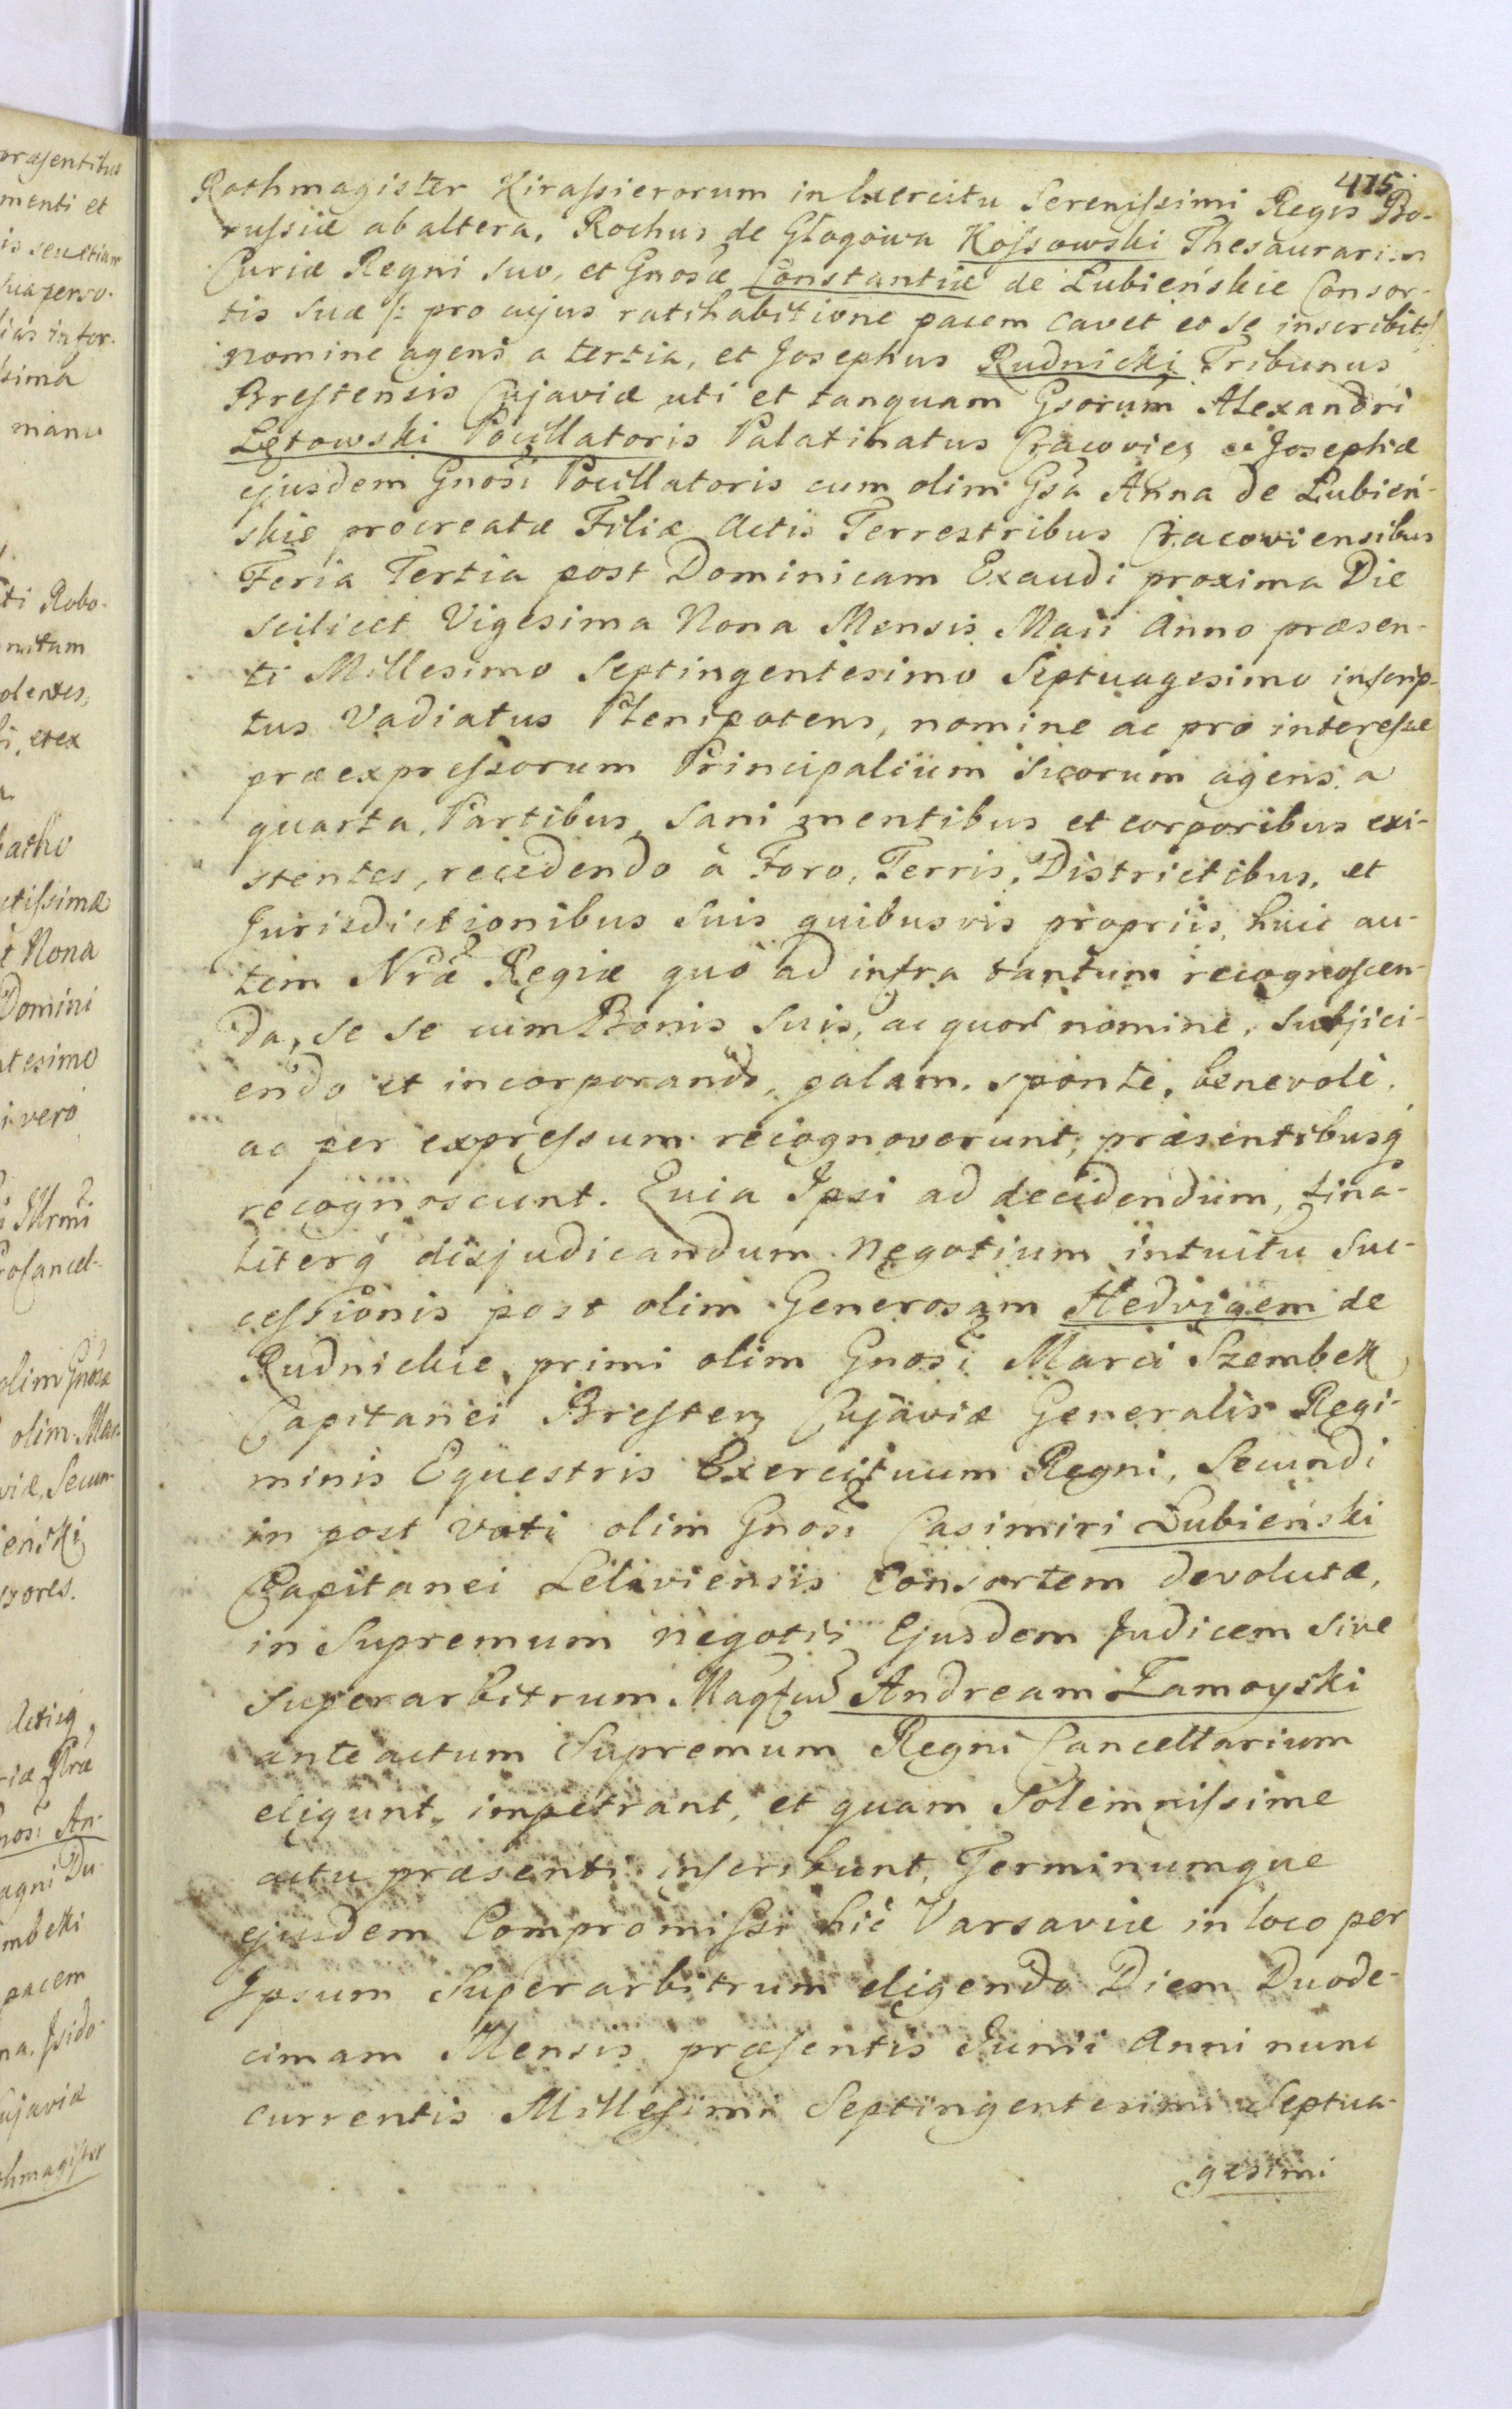 475
Rothmagister Kirassierorum in Exercitu Serenissimi Regis Bo-
russiæ ab altera, Rochus de Głogowa Kossowski Thesaurarius
Curiæ Regni suo, et Gnosæ Constantiæ de Łubieńskie Consor-
tis Suæ /: pro cujus ratihabitione pacem cavet et se inscribit :/
nomine agens a tertia, et Josephus Rudnicki Tribunus
Brestensis Cujaviæ uti et tanquam Gsorum Alexandri
Łętowski Pocillatoris Palatinatus Cracovien et Josephæ
ejusdem Gnosi Pocillatoris cum olim Gsa Anna de Łubień-
skie procreatæ Filiæ Actis Terrestribus Cracoviensibus
Feria Tertia post Dominicam Exaudi proxima Die
scilicet Vigesima Nona Mensis Maii Anno præsen-
ti Millesimo Septingentesimo Septuagesimo inscrip-
tus Vadiatus Plenipotens, nomine ac pro interesse
præexpressorum Principalium suorum agens a
quarta, Partibus, Sani mentibus et corporibus exi-
stentes, recedendo à Foro, Terris, Districtibus, et
Jurisdictionibus suis quibusvis propriis, huic au-
tem Nræ Regiæ quo ad infra tantum recognoscen-
da, se se cum Bonis suis, ac quor nomine, subjici-
endo et incorporando, palam, sponte, benevole,
ac per expressum recognoverunt, præsentibusq
recognoscunt. Quia Ipsi ad decidendum, fina-
literq disjudicandum Negotium intuitu suc-
cessionis post olim Generosam Hedvigem de
Rudnickie, primi olim Gnosi Marci Szembek
Capitanei Bresten Cujaviæ Generalis Regi-
minis Equestris Exercituum Regni, Secundi
in post voti olim Gnosi Casimiri Łubieński
Capitanei Leliviensis Consortem devolutæ,
in Supremum negotii Ejusdem Judicem sive
Superarbitrum Magfum Andream Zamoyski
anteactum Supremum Regni Cancellarium
eligunt, impetrant, et quam Solemnissime
actu præsenti inscribunt, Terminumque
ejusdem Compromissi hic Varsaviæ in loco per
Ipsum Superarbitrum eligendo Diem Duode-
cimam Mensis præsentis Junii Anni nunc
currentis Millesimi Septingentesimi Septua-
gesimi